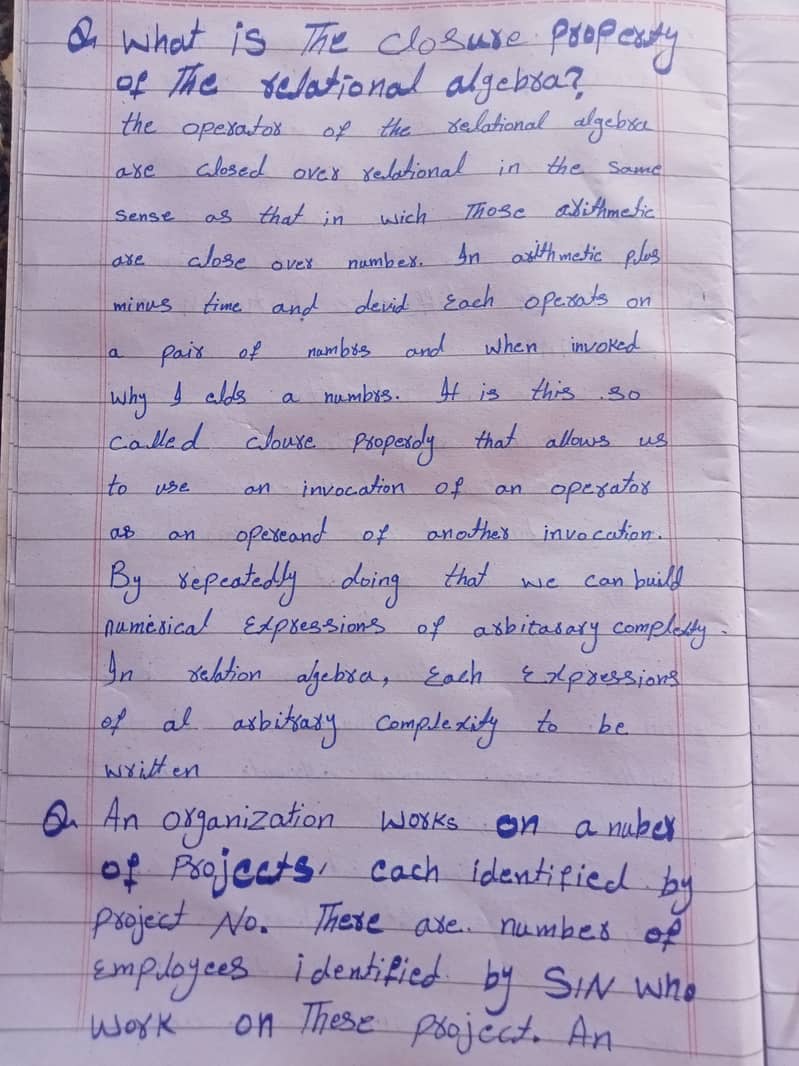 Q. What is The closure property
of The relational algebra?
the operator of the relational algebra
are closed over relational in the same
sense as that in wich Those arithmetic
are close over number. In arithmetic plus
minus time and devid Each operats on
a pair of numbrs and when invoked
why I elds a numbrs. It is this so
called cloure properdy that allows us
to use an invocation of an operator
as an opereand of another invocation.
By repeatedly doing that we can build
numerical Expressions of arbitarary complexty.
In relation algebra, Each Expressions
of al arbitrary complexity to be
written
Q. An organization works on a nuber
of Projects, each identified by
project No. There are number of
Employees identified by SIN who
work on These project. An